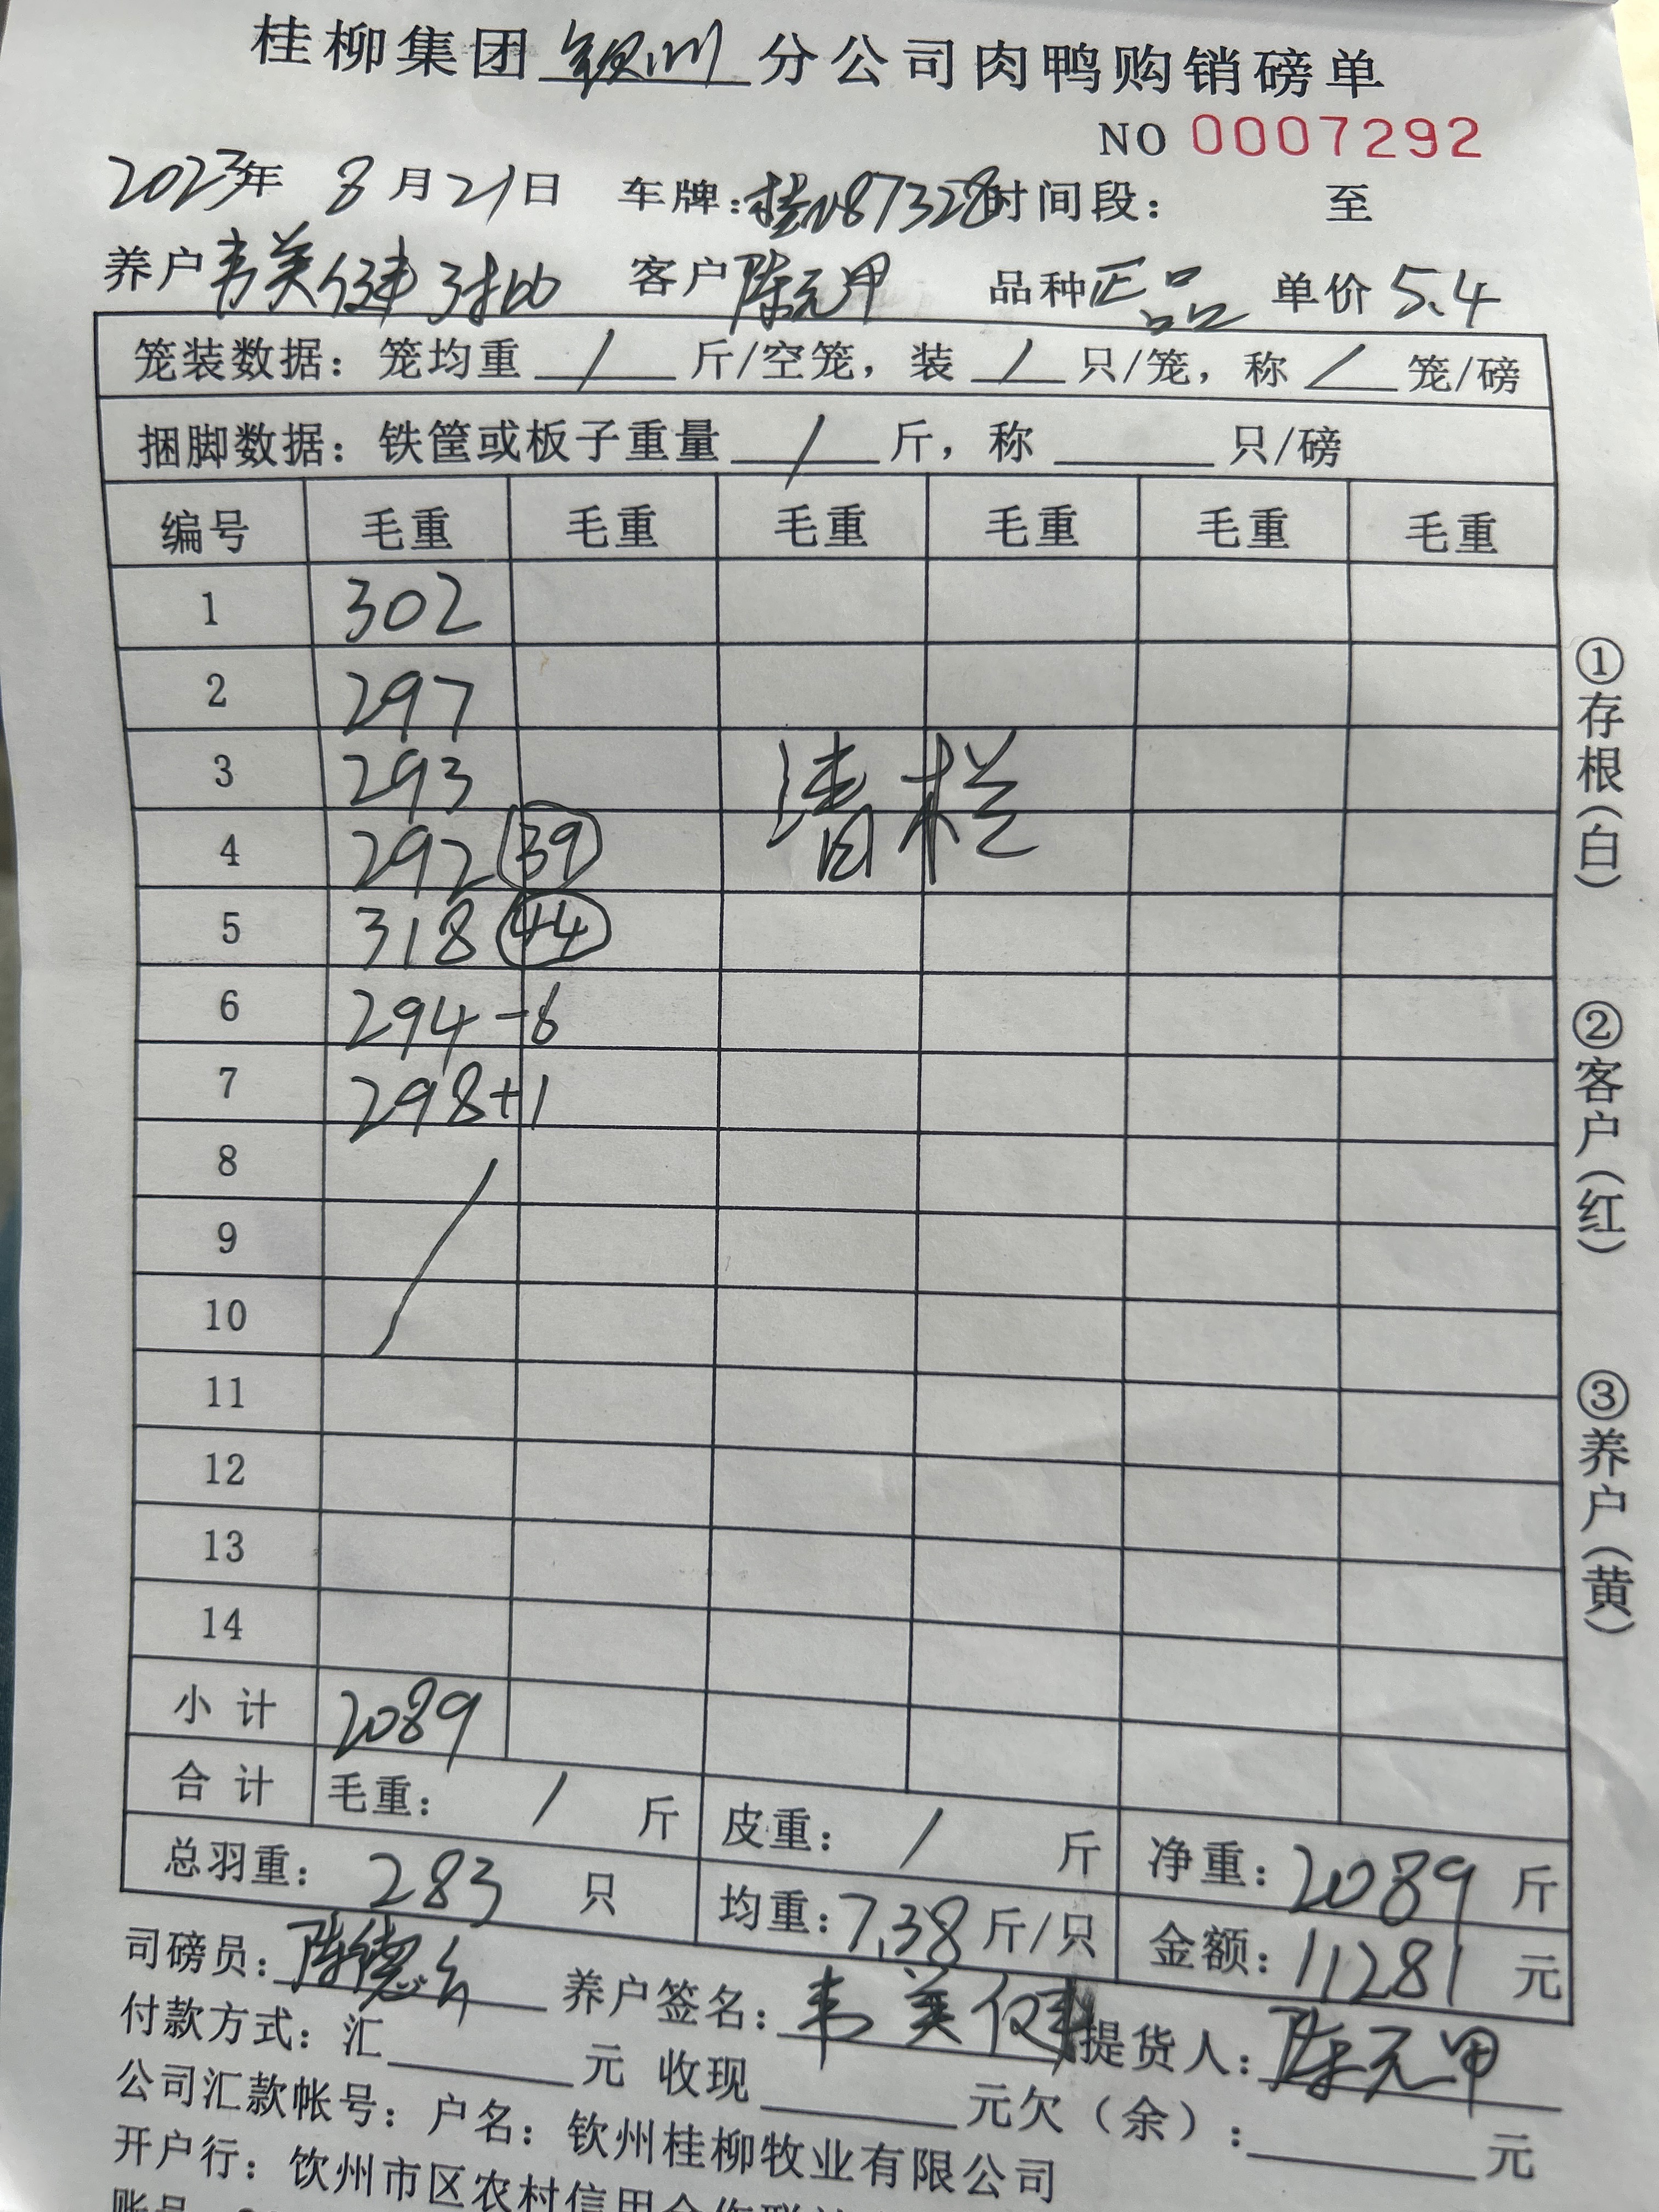 桂柳集团 钦州 分公司肉鸭购销磅单
NO 0007292
2023年 8月21日 车牌:桂N87328 时间段: 至
养户 韦美健 客户 陈元甲 品种 正品 单价 5.4
笼装数据: 笼均重 / 斤/空笼, 装 / 只/笼, 称 / 笼/磅
捆脚数据: 铁筐或板子重量 / 斤, 称 只/磅
编号 毛重 毛重 毛重 毛重 毛重 毛重
1 302
2 297
3 293
清栏
4 292 39
5 318 44
6 294 -6
7 298 +1
8
9
10
11
12
13
14
小计 2089
合计 毛重: / 斤 皮重: / 斤 净重: 2089 斤
总羽重: 283 只 均重: 7.38 斤/只 金额: 11281 元
司磅员: 陈德 养户签名: 韦美健 提货人: 陈元甲
付款方式: 汇 元 收现 元欠(余): 元
公司汇款帐号: 户名: 钦州桂柳牧业有限公司
开户行: 钦州市区农村信用合作联社
①存根(白)
②客户(红)
③养户(黄)